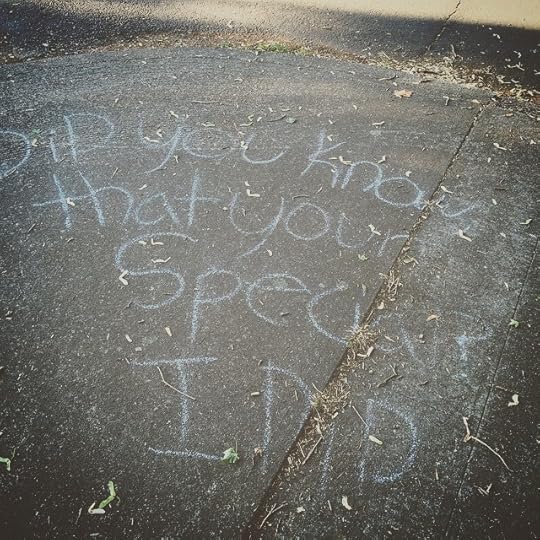 DiD you know
that your
Special?
I DiD